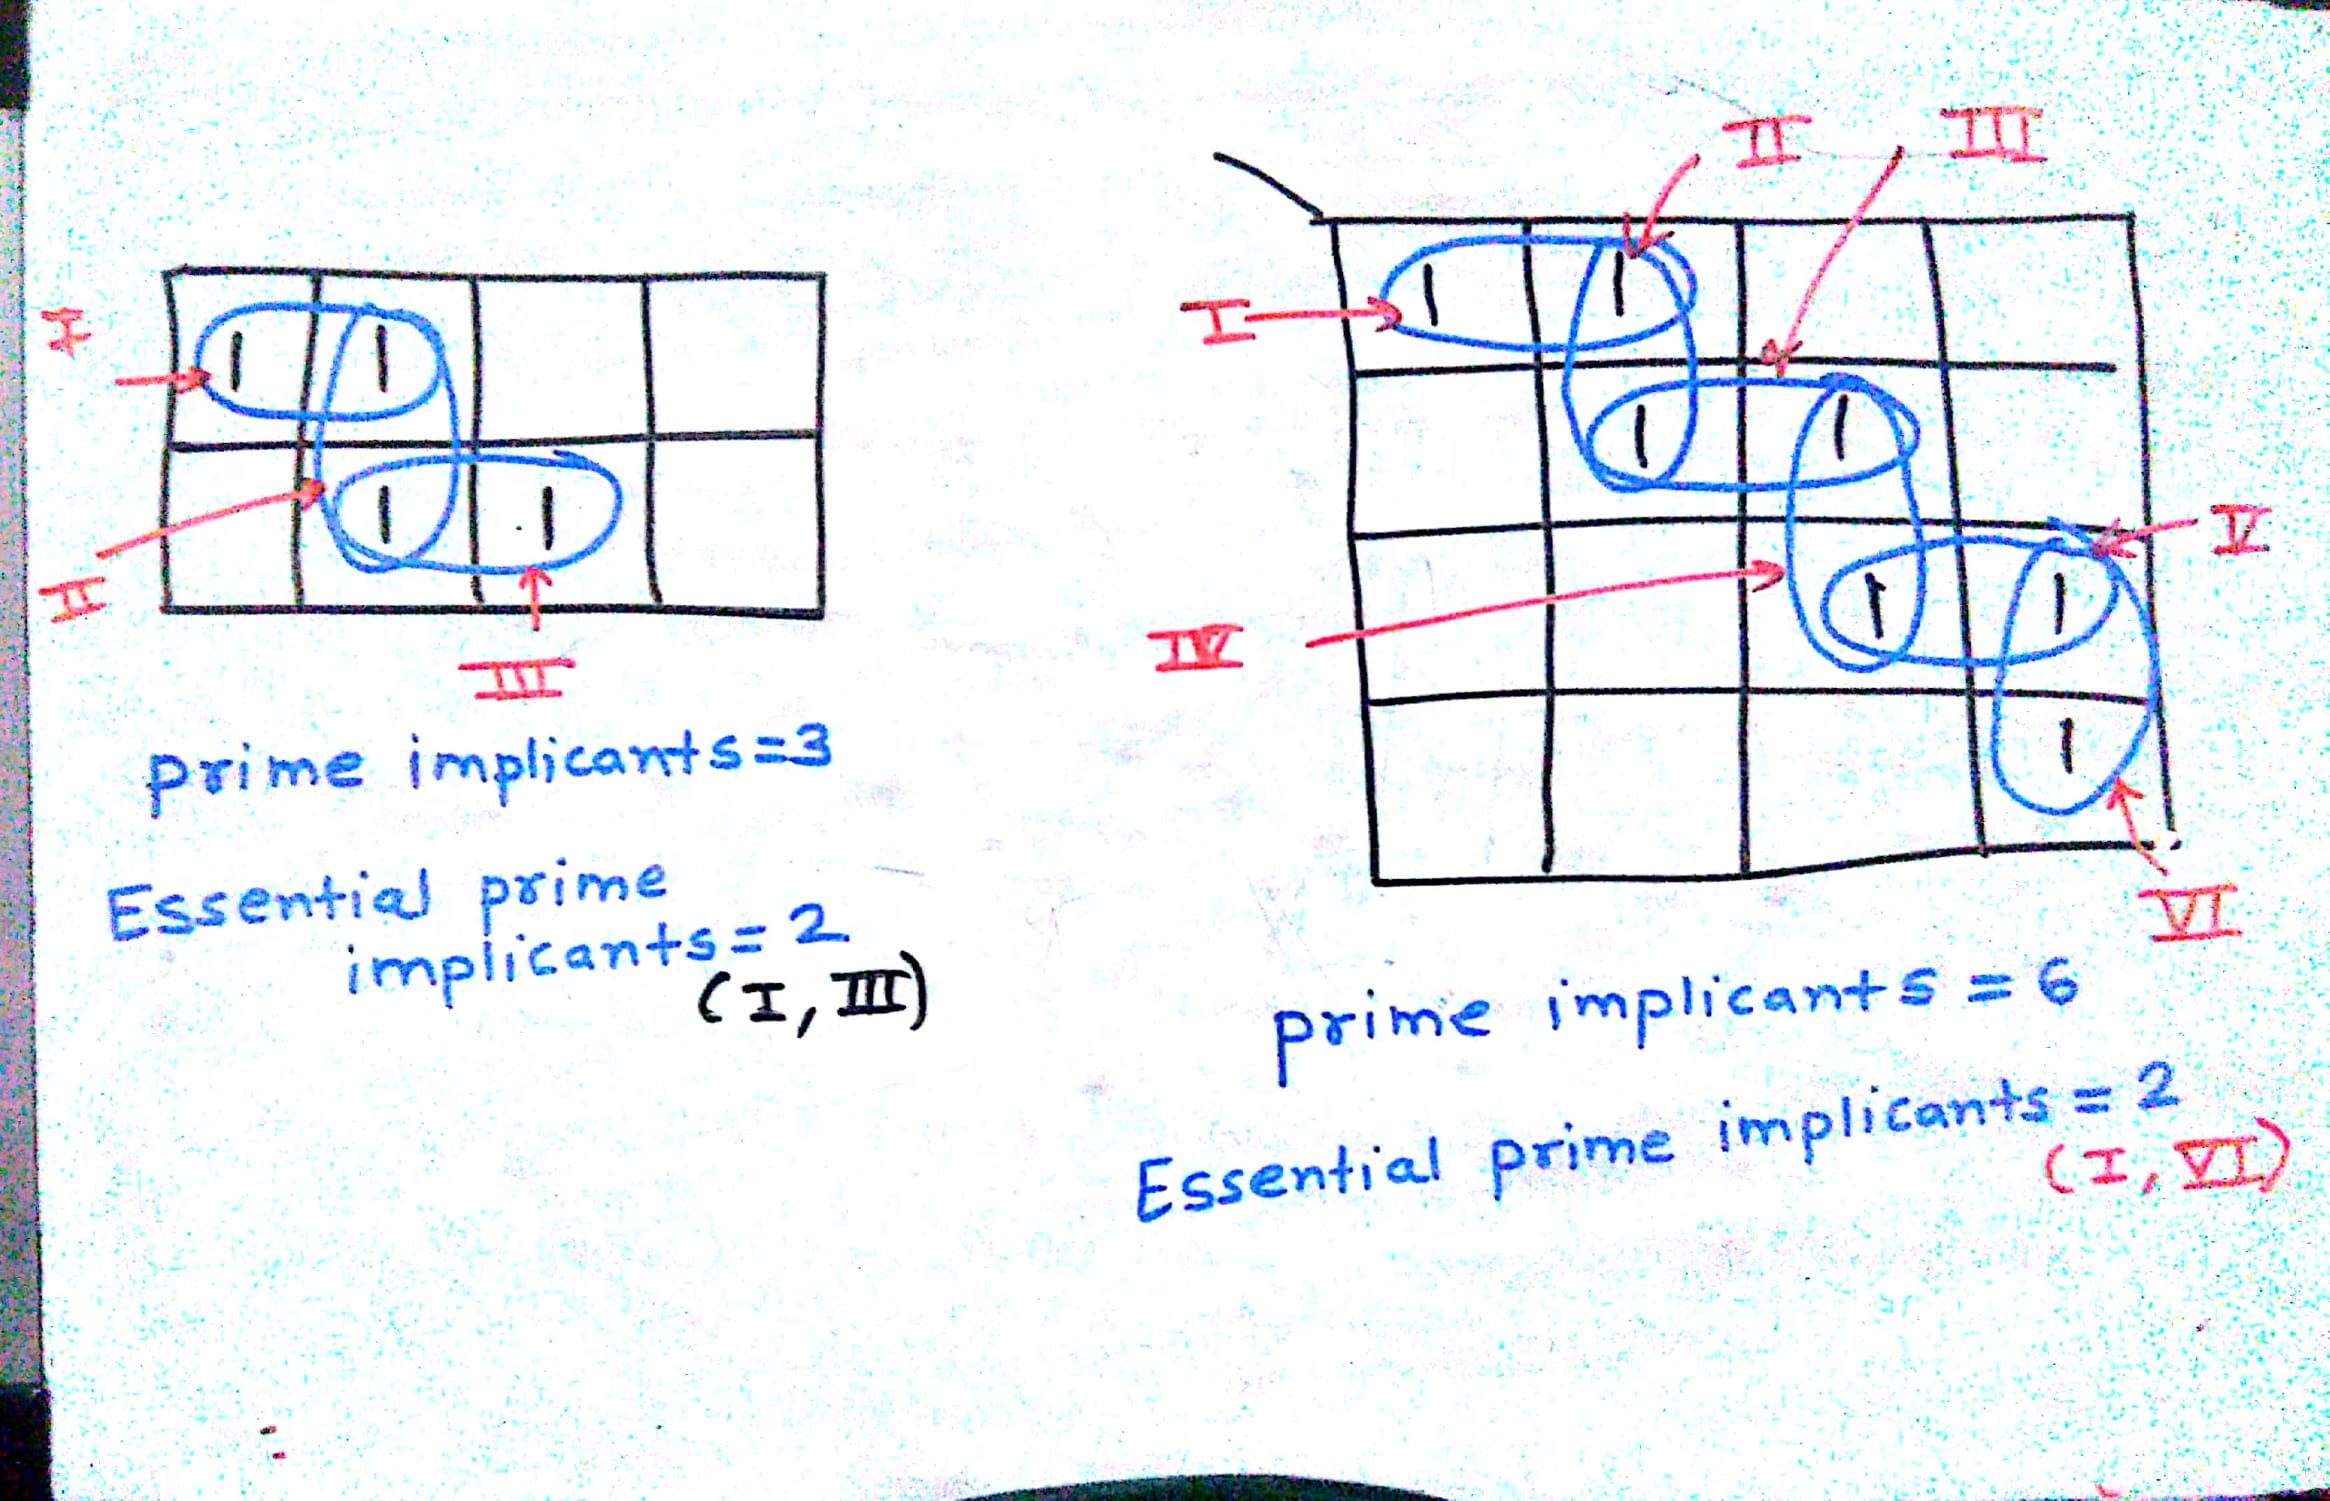 I
1 1
1 1
II
III
prime implicants=3
Essential prime
implicants=2
(I, III)
II III
I
1 1
1 1
V
1 1
IV
1
VI
prime implicants = 6
Essential prime implicants = 2
(I, VI)